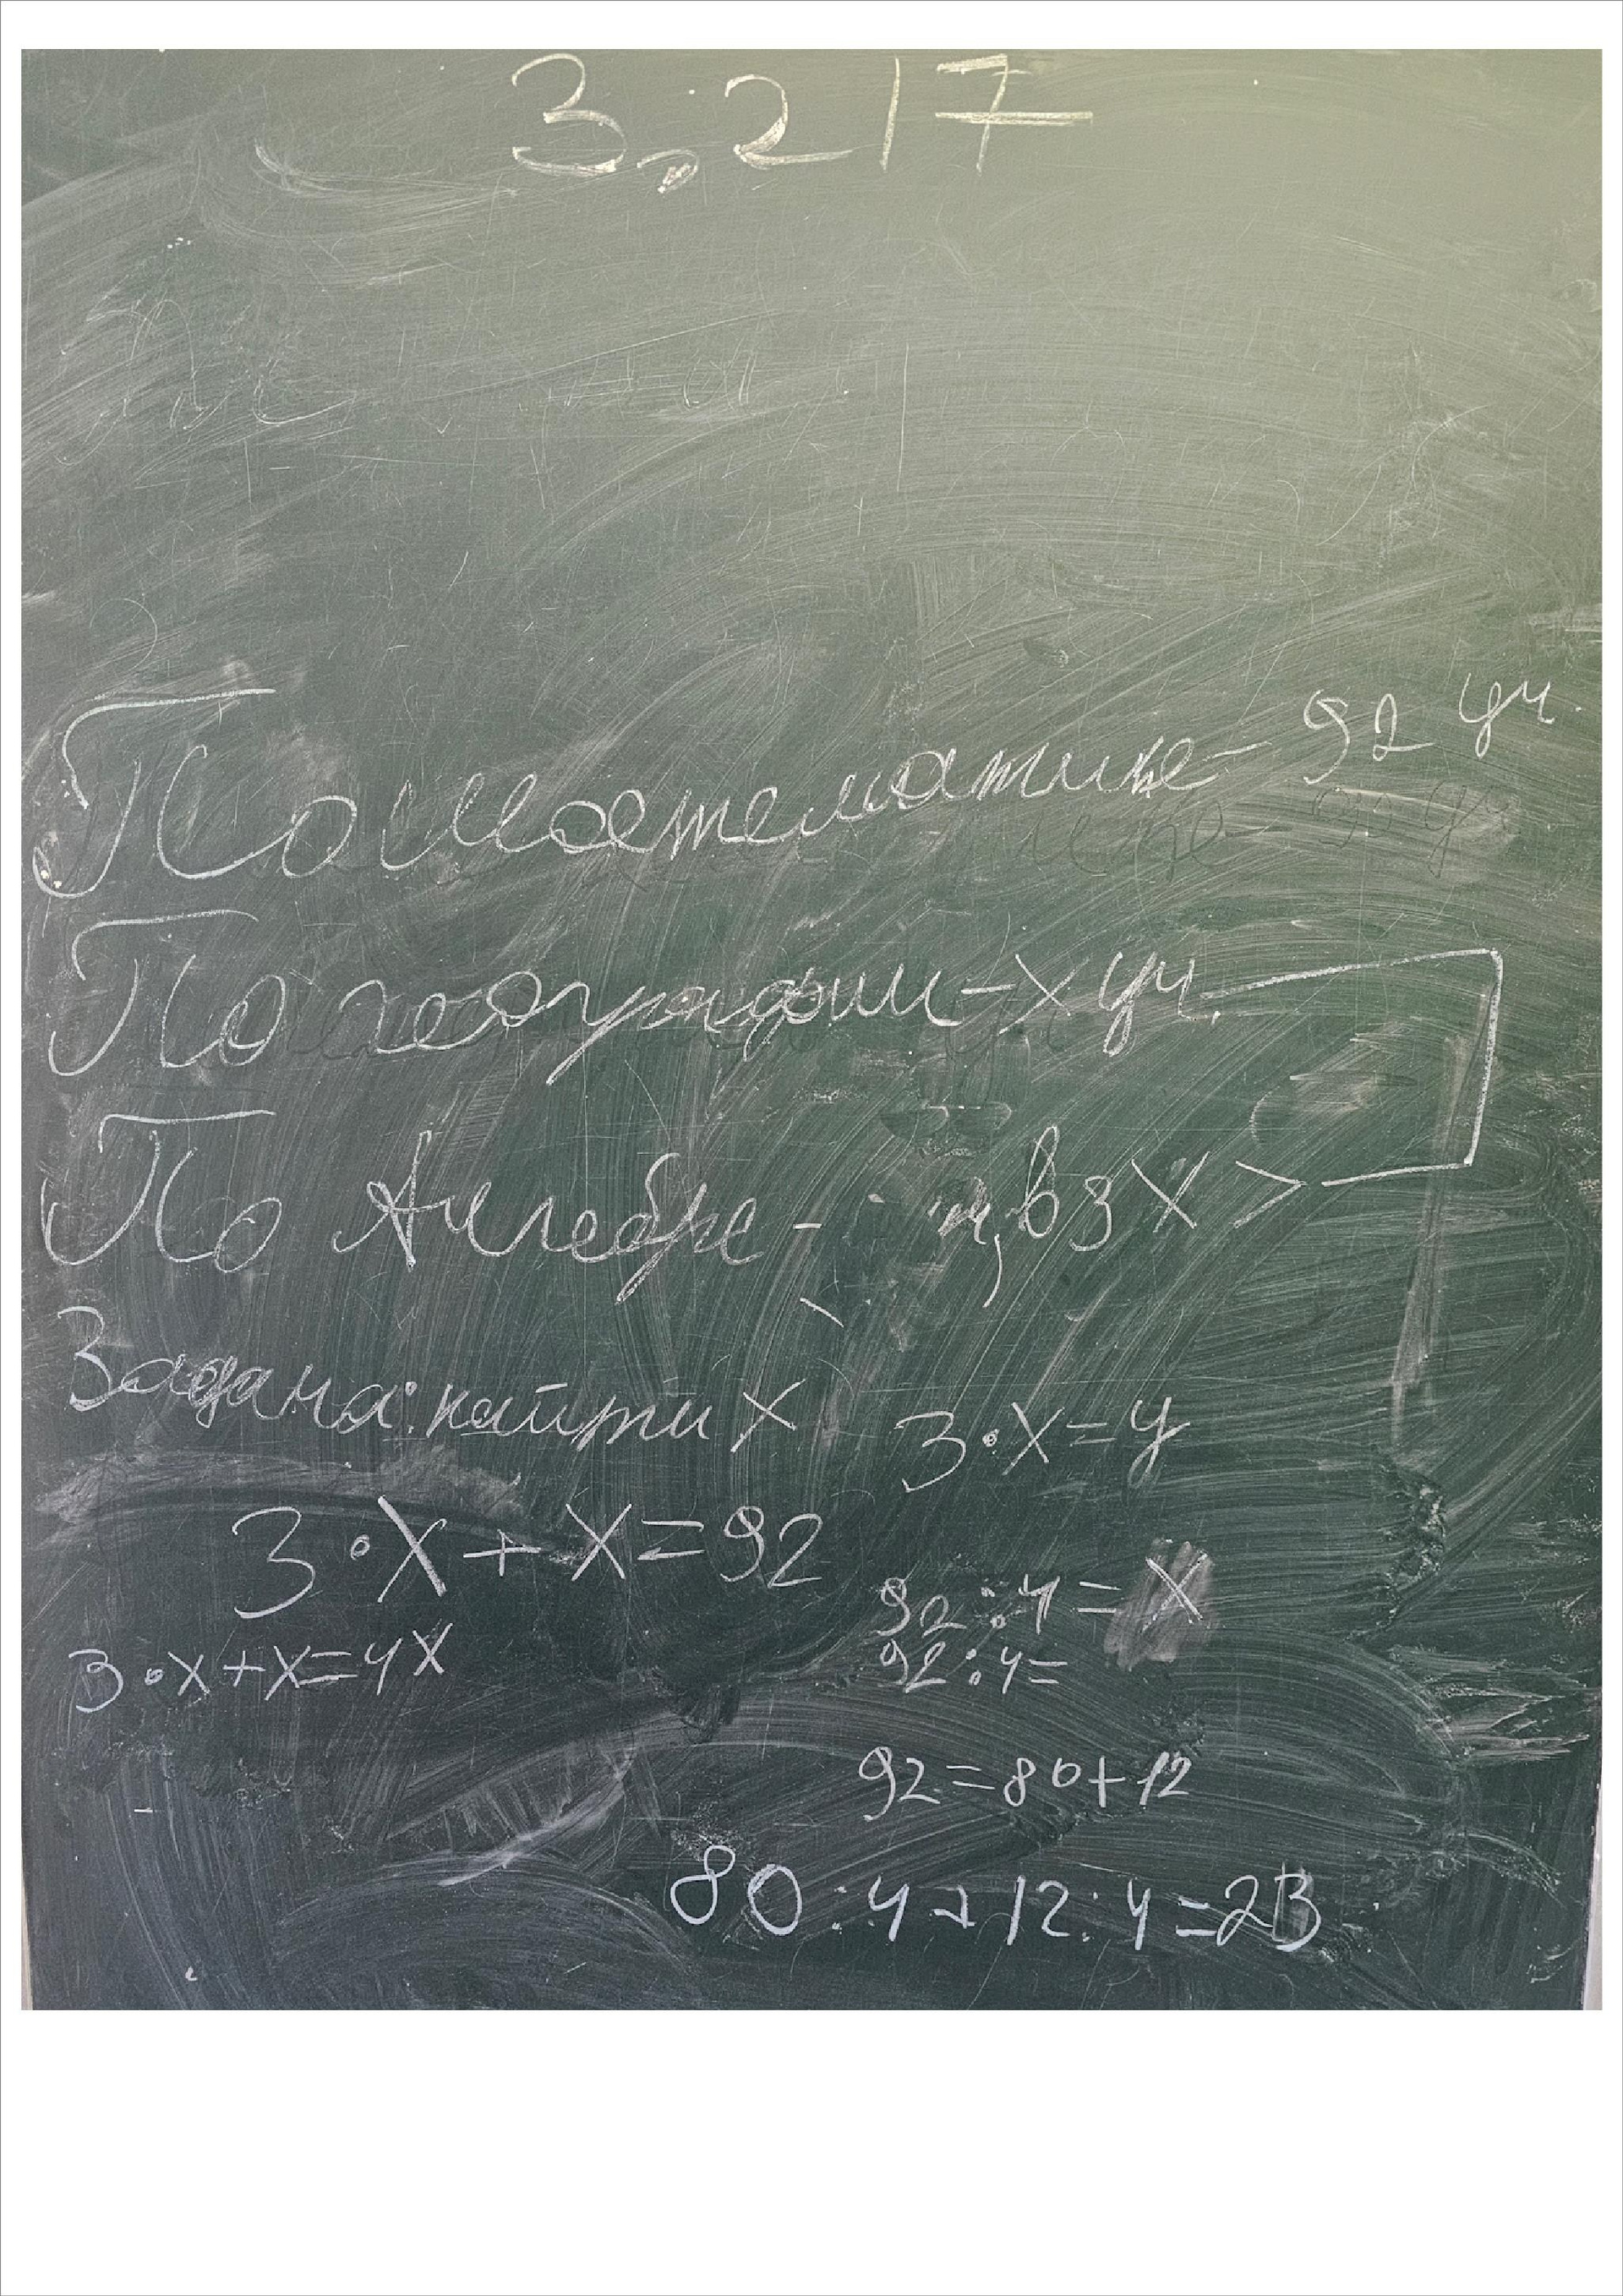 3.217
По математике - 92 уч.
По географии - х уч.
По Алгебре - в 3 х >
Задача: найти х
3·х=у
3·х+х=92
92:4=х
3·х+х=4х
92:4=
92=80+12
80:4+12:4=23